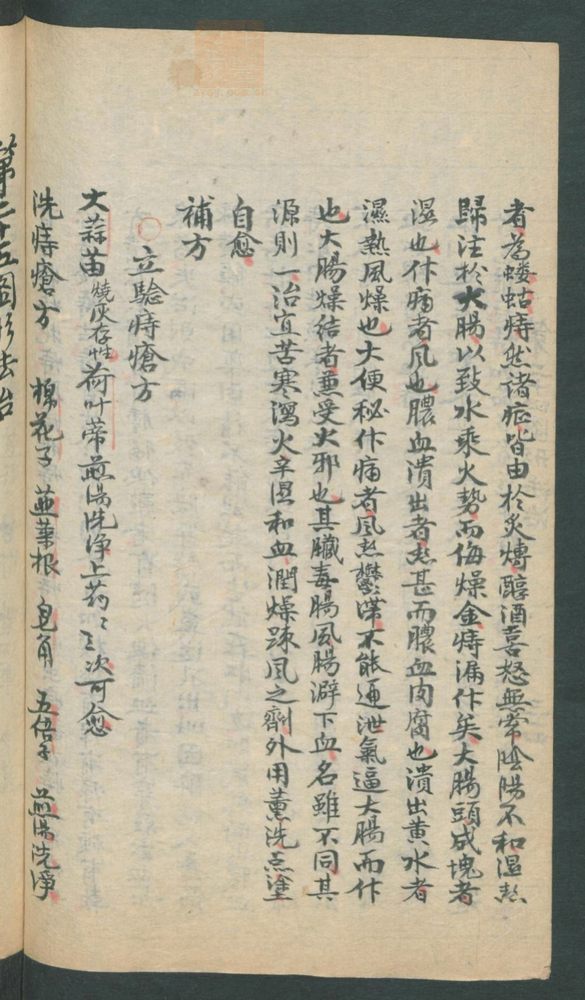 者為螻蛄痔然諸症皆由於炙煿醇酒喜怒無常陰陽不和濕热
歸注於大腸以致水乘火勢而侮燥金痔漏作矣大腸頭成塊者
湿也作痛者风也膿血潰出者热甚而膿血肉腐也潰出黄水者
濕熱風燥也大便秘作痛者风热鬱滞不能通泄氣逼大腸而作
也大腸燥结者兼受火邪也其臟毒腸风腸澼下血名雖不同其
源則一治宜苦寒瀉火辛湿和血潤燥踈风之劑外用薰洗点塗
自愈
補方
○立騐痔瘡方
大蒜苗燒灰存性荷叶蒂煎湯洗淨上药二三次可愈
洗痔瘡方 棉花子 韮菜根 皂角 五倍子 煎湯洗淨
第二十五圖形去治